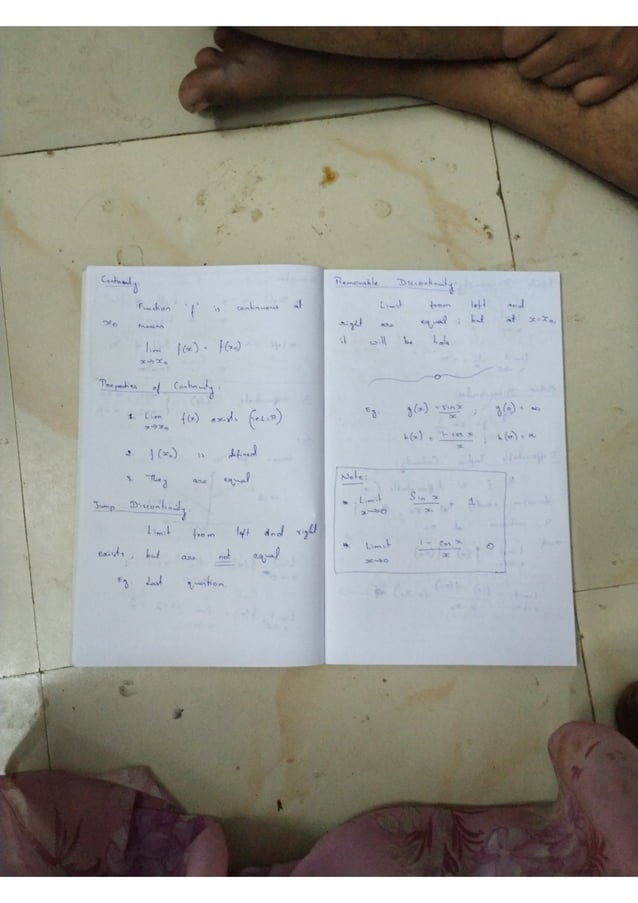 Continuity
Function 'f' is continuous at
x₀ means
lim f(x) = f(x₀)
x→x₀
Properties of Continuity:
1. Lim f(x) exists (i.e. L=R)
x→x₀
2. f(x₀) is defined
3. They are equal
Jump Discontinuity:
Limit from left and right
exists, but are not equal
Eg. Last question.
Removable Discontinuity:
Limit from left and
right are equal; but at x=x₀,
it will be hole.
Eg. g(x) = sin x / x ; g(0) = ∞
h(x) = 1 - cos x / x ; h(0) = ∞
Note:
* Limit Sin x / x = 1
x→0
* Limit 1 - cos x / x = 0
x→0